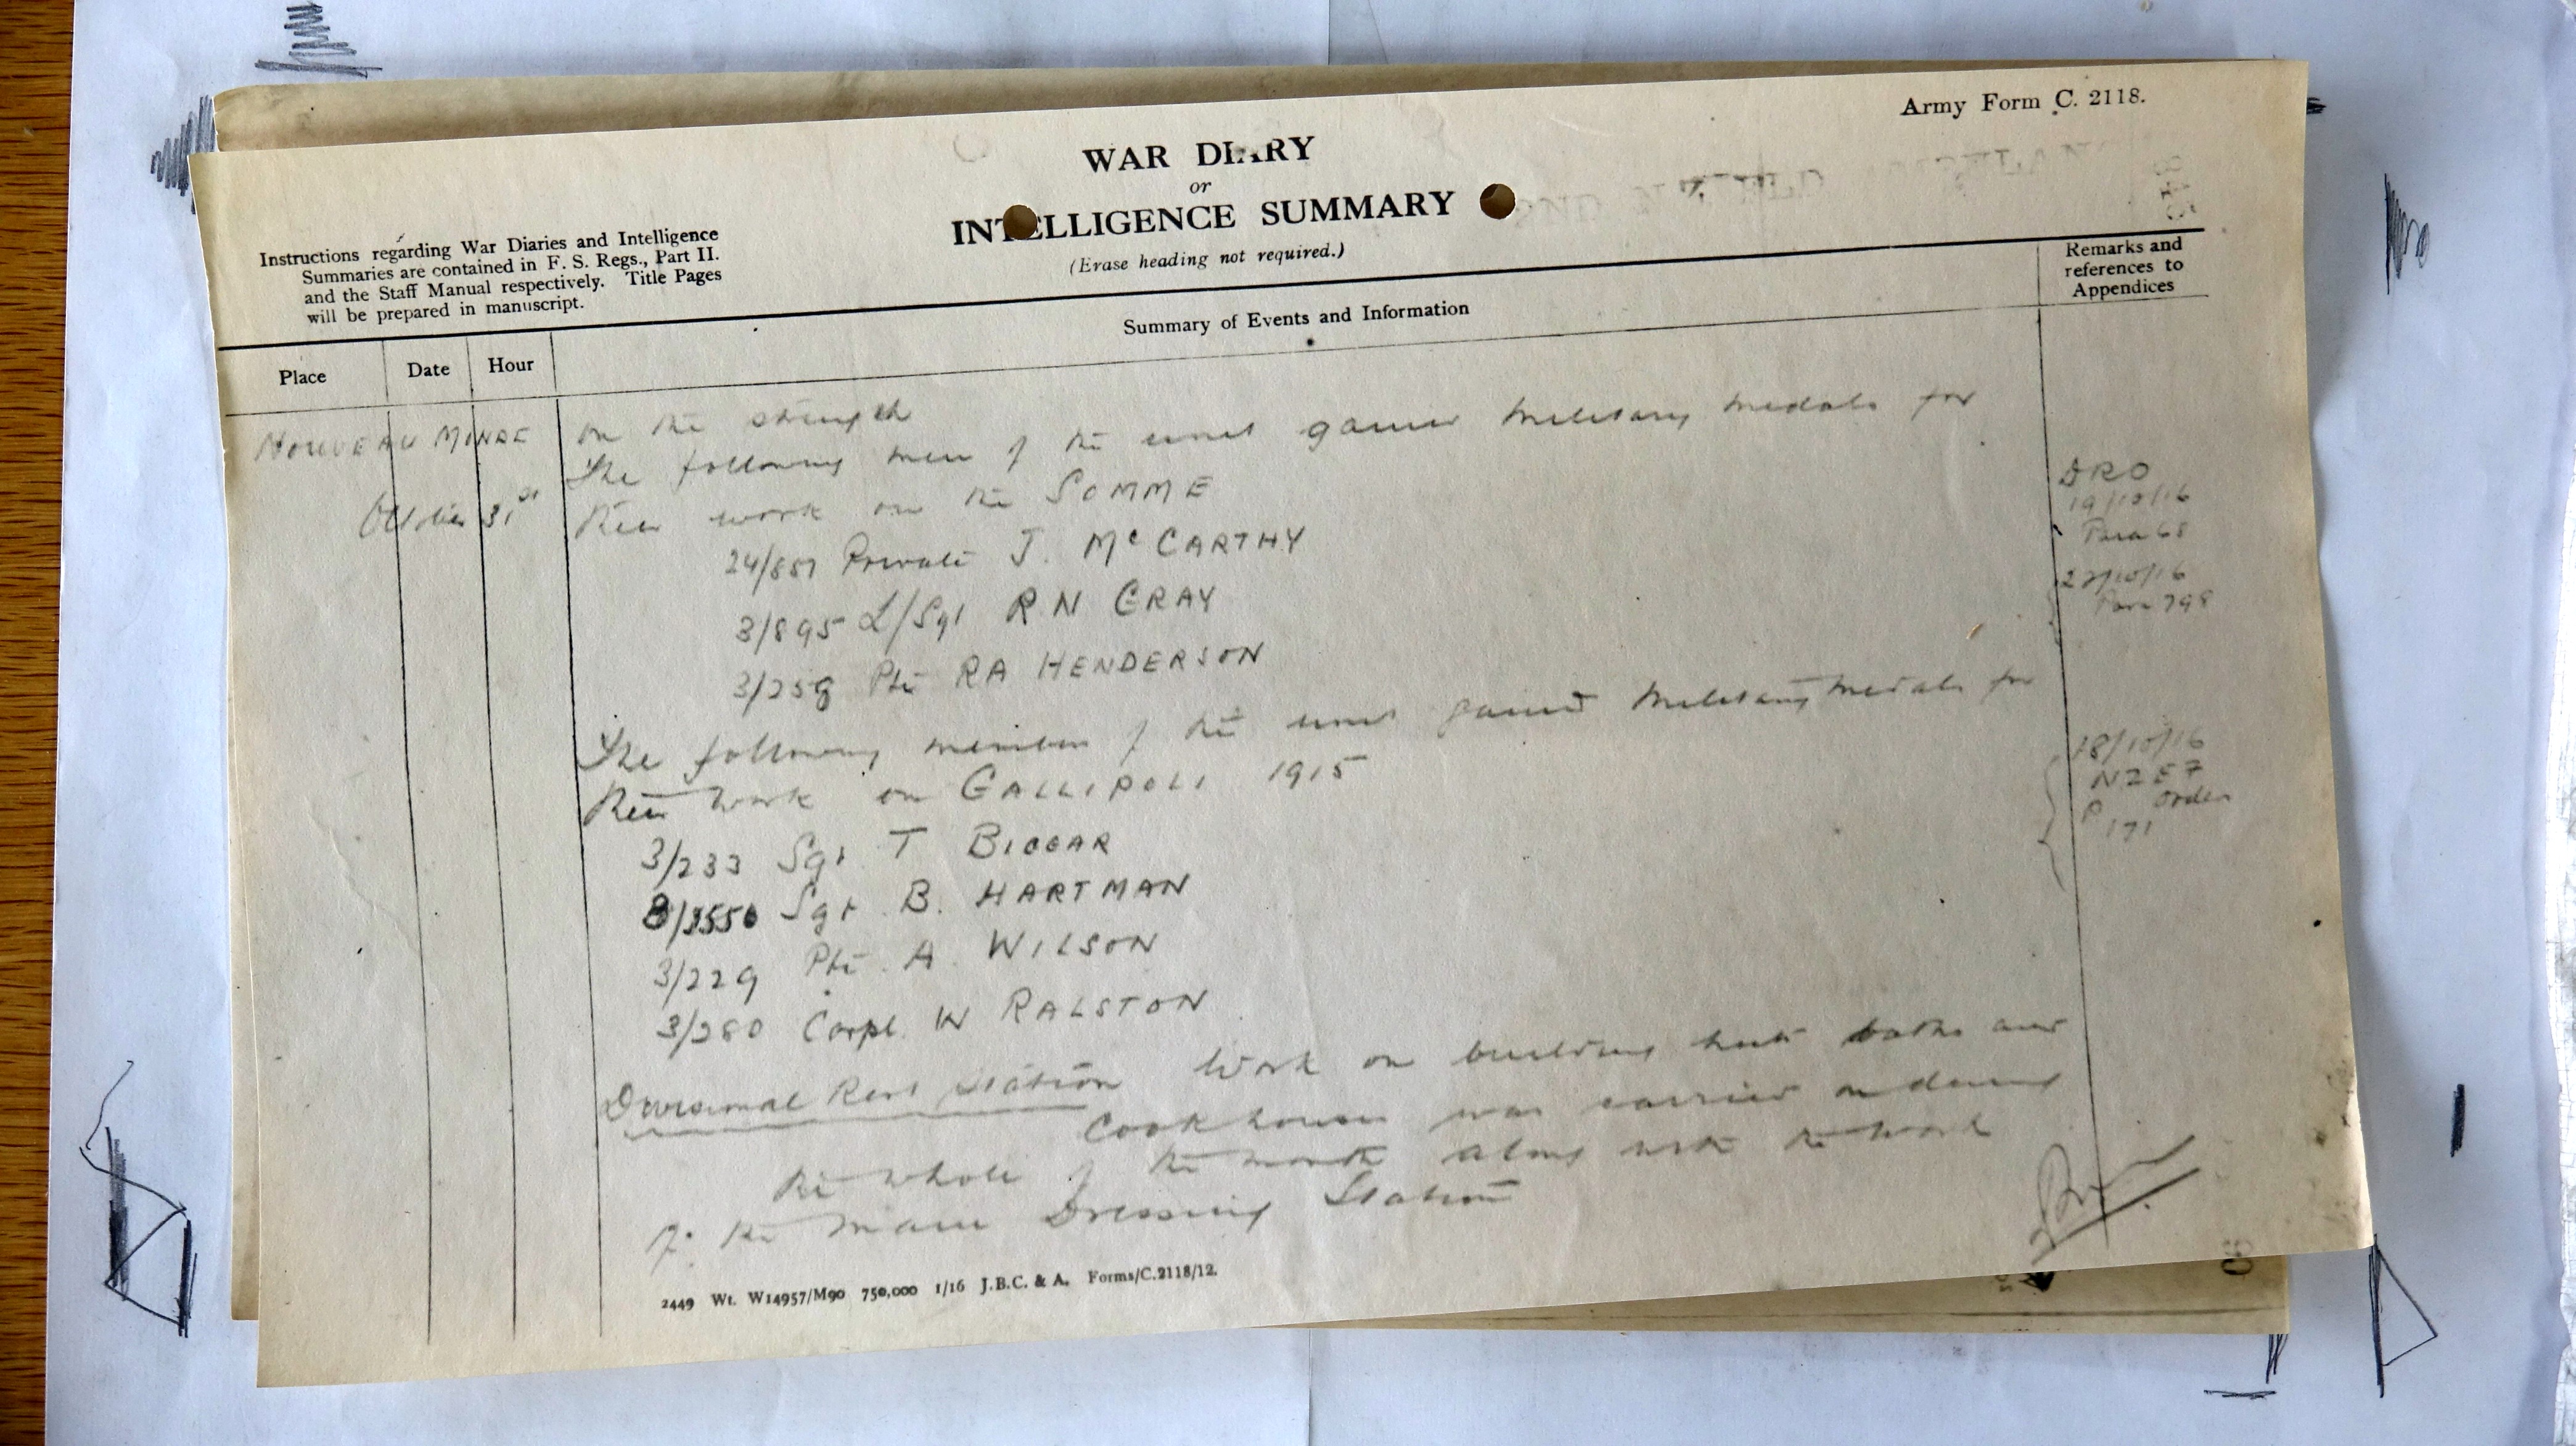 Army Form C. 2118.
WAR DIARY
or
INTELLIGENCE SUMMARY
(Erase heading not required.)
Instructions regarding War Diaries and Intelligence
Summaries are contained in F. S. Regs., Part II.
and the Staff Manual respectively. Title Pages
will be prepared in manuscript.
Summary of Events and Information
Remarks and
references to
Appendices
Place Date Hour
NOUVEAU MONDE
October 31st
on the strength
The following men of the unit gained Military Medals for
their work on the SOMME
24/857 Private J. McCARTHY
3/895 L/Sgt R N GRAY
3/259 Pte RA HENDERSON
DRO
19/10/16
Para 68
/10/16
Para 798
The following members of the unit gained Military Medals for
their work on GALLIPOLI 1915
3/233 Sgt T BIGGAR
Sgt. B. HARTMAN
3/229 Pte. A. WILSON
3/280 Corpl. W RALSTON
18/10/16
NZEF
Order
171
Divisional Rest Station Work on building huts baths and
cookhouses was carried on during
the whole of the month along with the work
of the Main Dressing Station
2449 Wt. W14957/M90 750,000 1/16 J.B.C. & A. Forms/C.2118/12.